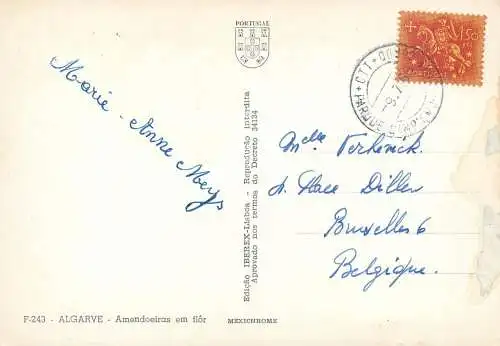 PORTUGAL
Marie-Anne Meys
Edição IBEREX-Lisboa - Reprodução interdita
Aprovado nos termos do Decreto 34134
Melle Verhenck.
Place Dillen
Bruxelles 6
Belgique.
F-243 - ALGARVE - Amendoeiras em flôr
MEXICHROME
1$50
CTT